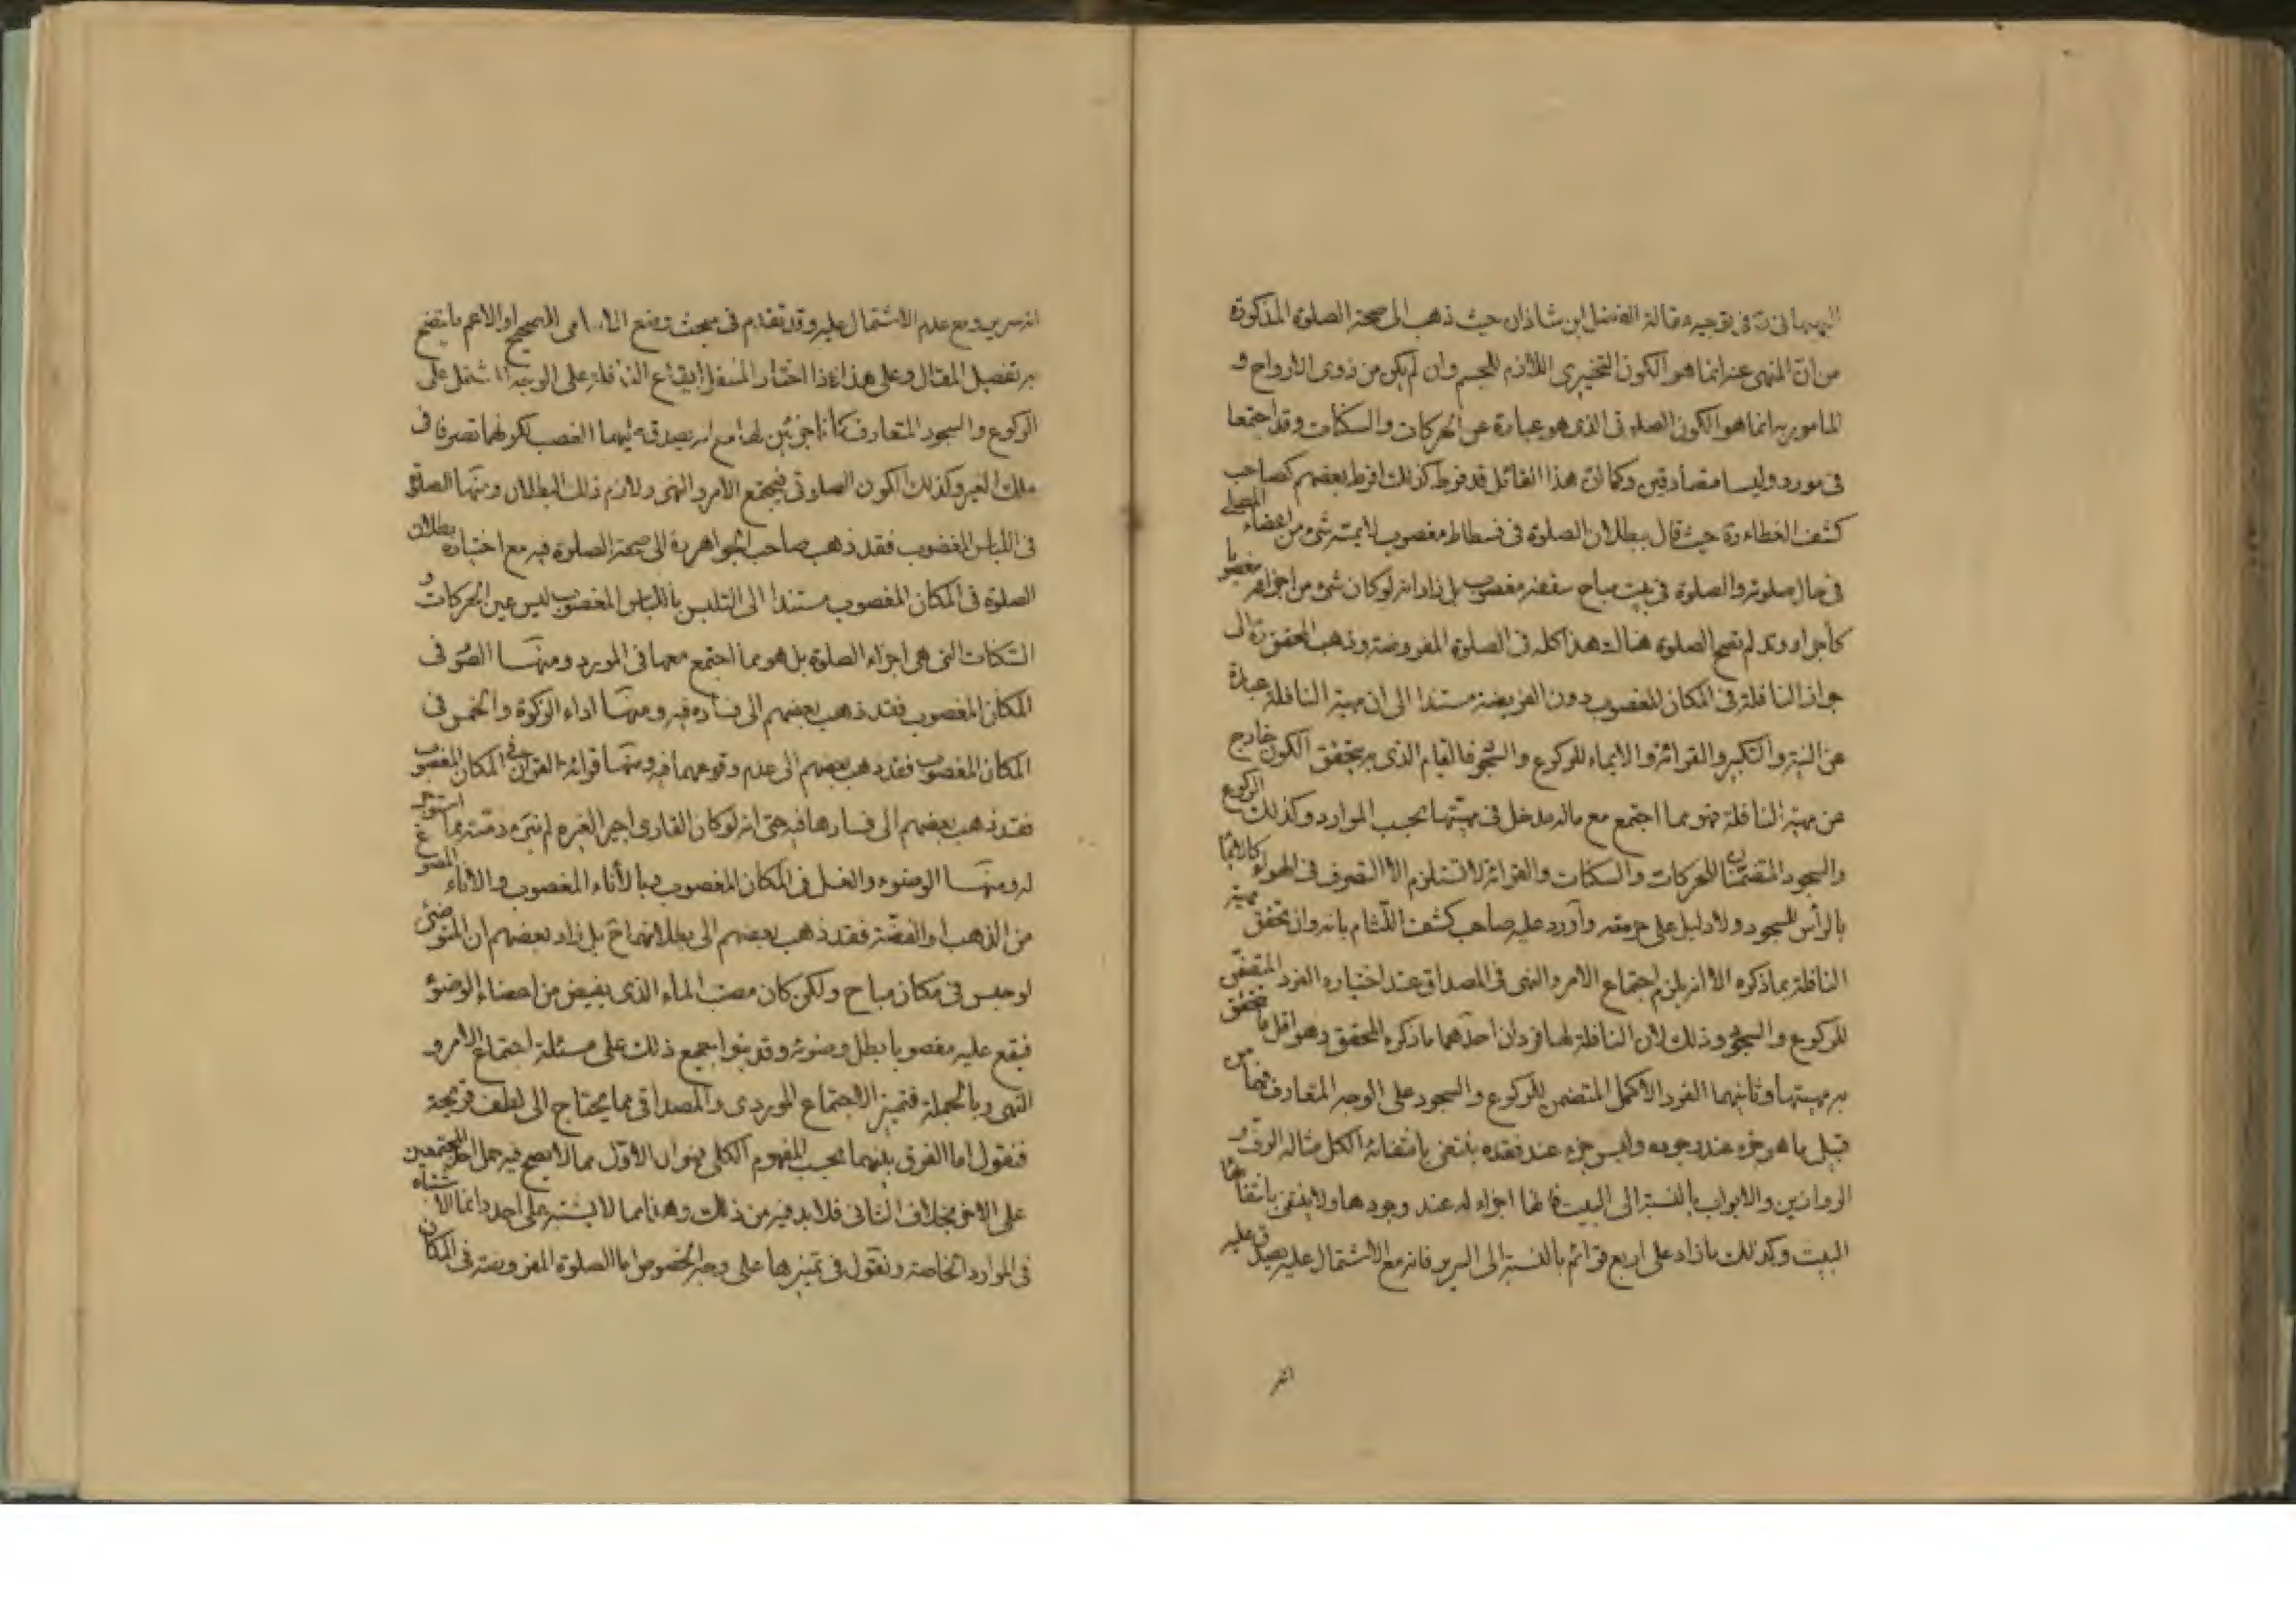 البهبهانى ره فى توجيه مقالة الفضل ابن شاذان حيث ذهب الى صحة الصلوة المذكورة
من ان المنهى عنه انما هو الكون التحيزى اللازم للجسم وان لم يكن من ذوى الارواح و
المامور به انما هو الكون الصلوتى الذى هو عبارة عن الحركات والسكنات وقد اجتمعا
فى مورد وليسا متصادقين وكما ان هذا القائل قد فرط كذلك افرط بعضهم كصاحب
كشف الغطاء ره حيث قال ببطلان الصلوة فى فسطاط مغصوب لا يمسه شئ من اعضاء المصلى
فى حال صلوته والصلوة فى بيت مباح سقفه مغصوب بل زاد انه لو كان شئ من اجزائه مغصوبا
كاجر او وتد لم تصح الصلوة هناك هذا كله فى الصلوة المفروضة وذهب المحقق ره الى
جواز النافلة فى المكان المغصوب دون الفريضة مستندا الى ان مهية النافلة عبارة
عن النية والتكبير والقرائة والايماء للركوع والسجود فالقيام الذى به يتحقق الكون خارج
عن مهية النافلة فهو مما اجتمع مع ماله مدخل فى مهيتها بحسب الموارد وكذلك الركوع
والسجود المتضمنان للحركات والسكنات والقرائة لا تستلزم الا التصرف فى الهواء كالايماء
بالرأس للسجود ولا دليل على حرمته وأورد عليه صاحب كشف اللثام بانه وان تحقق مهية
النافلة بما ذكره الا انه يلزم اجتماع الامر والنهى فى المصداق عند اختياره الفرد المقتضى
للركوع والسجود وذلك لان النافلة لها فردان احدهما ما ذكره المحقق وهو اقل ما يتحقق
به مهيتها وثانيهما الفرد الاكمل المتضمن للركوع والسجود على الوجه المتعارف فهما من
قبيل ما هو جزء عند وجوده وليس جزء عند فقده ينتفى بانتفائه الكل مثاله و
الروازين والابواب بالنسبة الى البيت فانها اجزاء له عند وجودها ولا ينتفى بانتفائها
البيت وكذلك ما زاد على اربع قوائم بالنسبة الى السرير فانه مع الاشتمال عليه يصدق عليه
انه
انه سرير ومع عدم الاشتمال عليه وقد تقدم فى مبحث وضع الاسامى للصحيح او الاعم ما يتضح
به تفصيل المقال وعلى هذا فاذا اختار المتنفل ايقاع النافلة على الوجه المشتمل على
الركوع والسجود المتعارف كانا جزئين لها مع انه يصدق عليهما الغصب لكونهما تصرفا فى
ملك الغير وكذلك الكون الصلوتى فيجتمع الامر والنهى ولازم ذلك البطلان ومنها الصلوة
فى اللباس المغصوب فقد ذهب صاحب الجواهر ره الى صحة الصلوة فيه مع اختياره بطلان
الصلوة فى المكان المغصوب مستندا الى التلبس باللباس المغصوب ليس عين الحركات و
السكنات التى هى اجزاء الصلوة بل هو مما اجتمع معها فى المورد ومنها الصوم فى
المكان المغصوب فقد ذهب بعضهم الى فساده فيه ومنها اداء الزكوة والخمس فى
المكان المغصوب فقد ذهب بعضهم الى عدم وقوعهما فيه ومنها قرائة القرآن فى المكان المغصوب
فقد ذهب بعضهم الى فسادها فيه حتى انه لو كان القارى اجير الغيره لم تبرء ذمته مما استوجر
له ومنها الوضوء والغسل فى المكان المغصوب وبالاناء المغصوب والاناء المصوغ
من الذهب او الفضة فقد ذهب بعضهم الى بطلانهما ح بل زاد بعضهم ان المتوضئ
لو جلس فى مكان مباح ولكن كان مصب الماء الذى يفيض من اعضاء الوضوء
فيقع عليه مغصوبا بطل وضوئه وقد بنوا جميع ذلك على مسئلة اجتماع الامر و
النهى وبالجملة فتميز الاجتماع الموردى والمصداقى مما يحتاج الى لطف قريحة
فنقول اما الفرق بينهما بحسب المفهوم الكلى فهو ان الاول مما لا يصح فيه حمل احد المجتمعين
على الاخر بخلاف الثانى فلا بد فيه من ذلك وهذا مما لا يشتبه على احد وانما الاشتباه
فى الموارد الخاصة ونقول فى تميزها على وجه الخصوص اما الصلوة المفروضة فى المكان